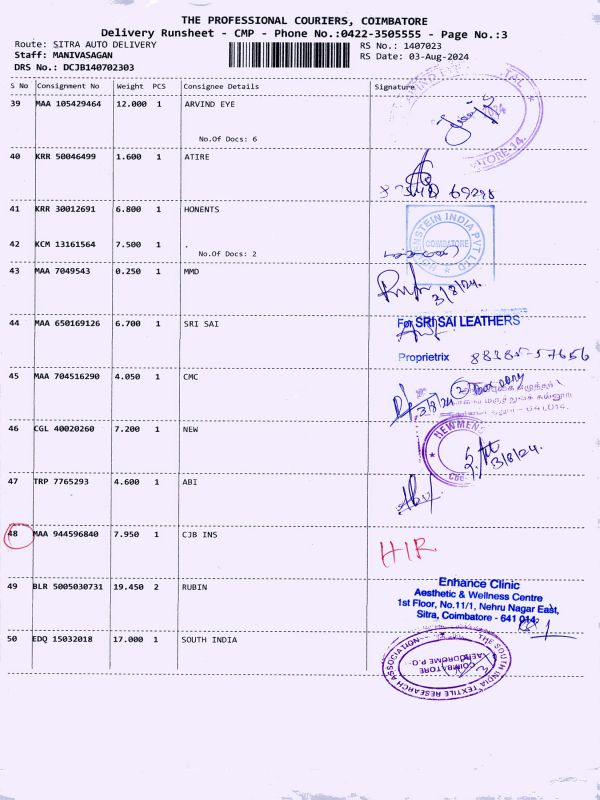 THE PROFESSIONAL COURIERS, COIMBATORE
Delivery Runsheet - CMP - Phone No.:0422-3505555 - Page No.:3
Route: SITRA AUTO DELIVERY
RS No.: 1407023
Staff: MANIVASAGAN
RS Date: 03-Aug-2024
DRS No.: DCJB140702303
S No Consignment No Weight PCS Consignee Details Signature
39 MAA 105429464 12.000 1 ARVIND EYE
No.Of Docs: 6
40 KRR 50046499 1.600 1 ATIRE
41 KRR 30012691 6.800 1 HONENTS
INDIA PVT LTD
COIMBATORE
42 KCM 13161564 7.500 1 .
No.Of Docs: 2
43 MAA 7049543 0.250 1 MMD
3/8/24.
44 MAA 650169126 6.700 1 SRI SAI
For SRI SAI LEATHERS
Proprietrix 88385-57656
45 MAA 704516290 4.050 1 CMC
3/8/24
46 CGL 40020260 7.200 1 NEW
NEWMENS
3/8/24.
47 TRP 7765293 4.600 1 ABI
48 MAA 944596840 7.950 1 CJB INS
HIR
49 BLR 5005030731 19.450 2 RUBIN
Enhance Clinic
Aesthetic & Wellness Centre
1st Floor, No.11/1, Nehru Nagar East,
Sitra, Coimbatore - 641 014.
50 EDQ 15032018 17.000 1 SOUTH INDIA
THE SOUTH INDIA TEXTILE RESEARCH ASSOCIATION
COIMBATORE
AERODROME P.O.